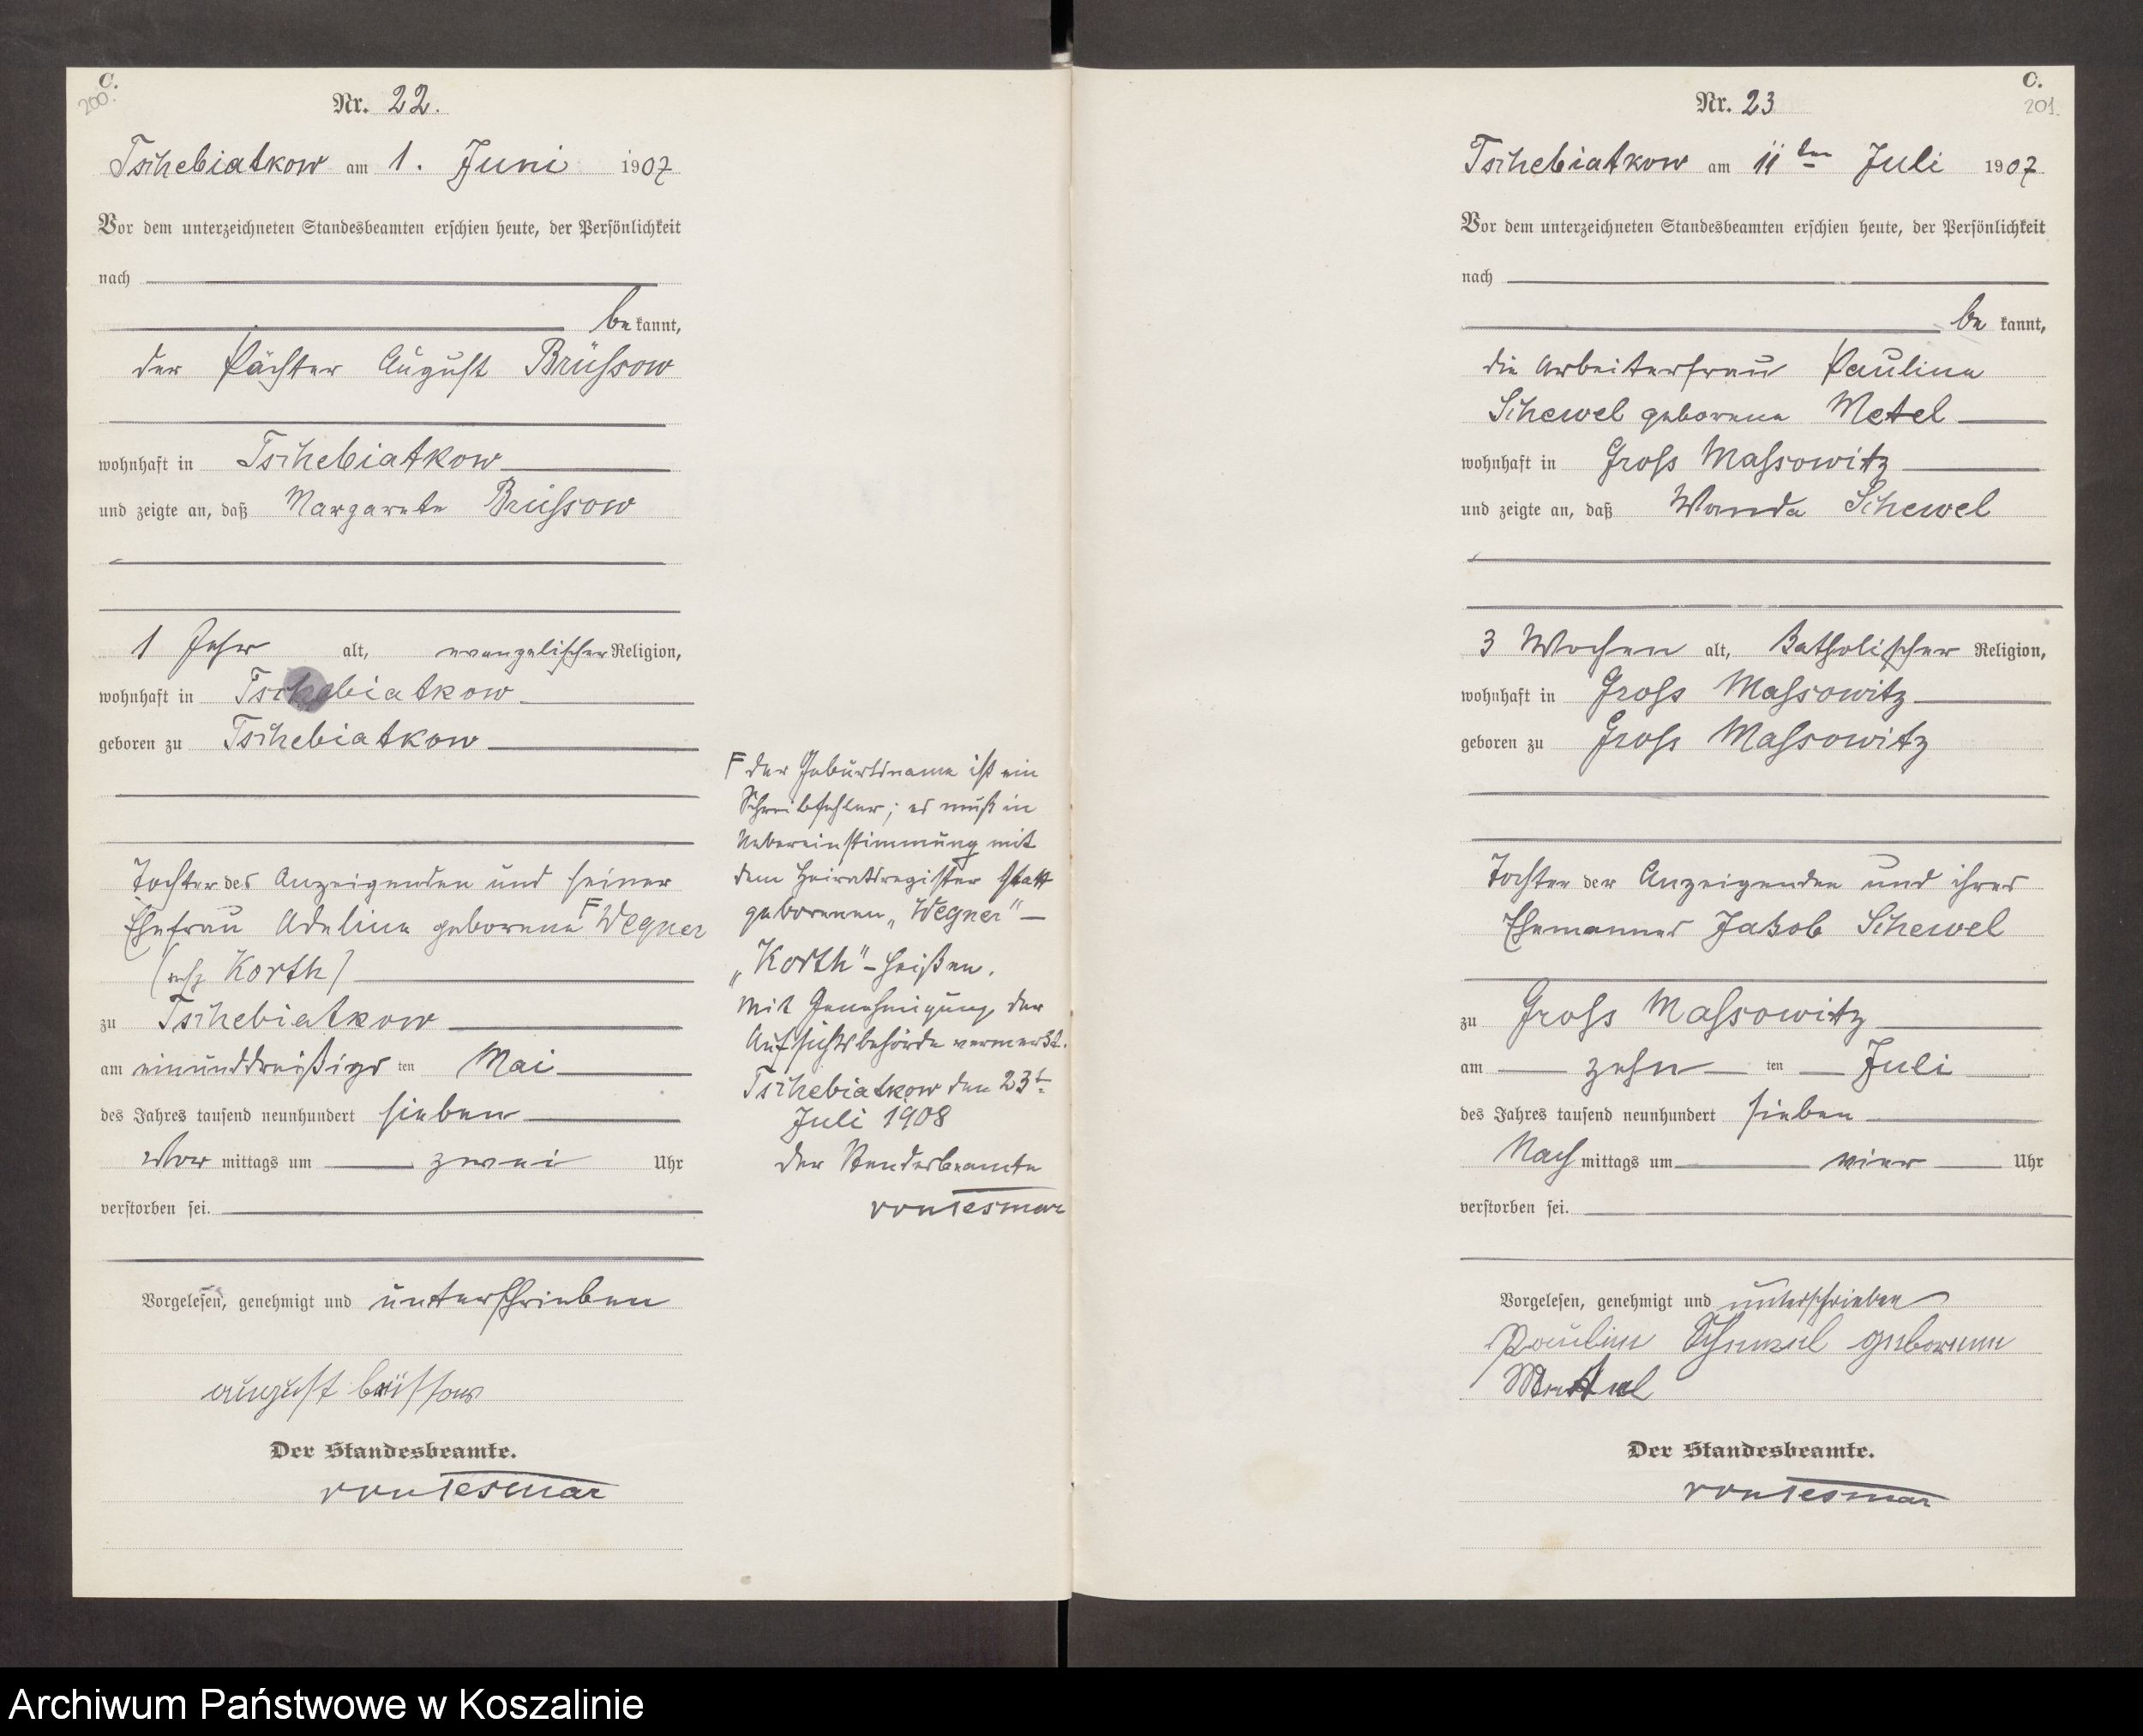 C.
200.
Nr. 22.
Tschebiatkow am 1. Juni 1907
Vor dem unterzeichneten Standesbeamten erschien heute, der Persönlichkeit
nach
be kannt,
der Pächter August Brüssow
wohnhaft in Tschebiatkow
und zeigte an, daß Margarete Brüssow
1 Jahr alt, evangelischer Religion,
wohnhaft in Tschebiatkow
geboren zu Tschebiatkow
Tochter des Anzeigenden und seiner
Ehefrau Adeline geborene F Wegner
(resp Korth)
zu Tschebiatkow
am einunddreißigs ten Mai
des Jahres tausend neunhundert sieben
Vor mittags um zwei Uhr
verstorben sei.
Vorgelesen, genehmigt und unterschrieben
august brüssow
Der Standesbeamte.
von Tesmar
F der Geburtsname ist ein
Schreibfehler; es muß in
Uebereinstimmung mit
dem Heiratsregister statt
geborenen „Wegner" –
„Korth" – heißen.
Mit Genehmigung der
Aufsichtsbehörde vermerkt.
Tschebiatkow den 23t.
Juli 1908
Der Standesbeamte
von Tesmar
C.
201.
Nr. 23
Tschebiatkow am 11ten Juli 1907
Vor dem unterzeichneten Standesbeamten erschien heute, der Persönlichkeit
nach
be kannt,
die Arbeiterfrau Pauline
Schewel geborene Metel
wohnhaft in Gross Massowitz
und zeigte an, daß Wanda Schewel
3 Wochen alt, katholischer Religion,
wohnhaft in Gross Massowitz
geboren zu Gross Massowitz
Tochter der Anzeigenden und ihres
Ehemannes Jakob Schewel
zu Gross Massowitz
am zehn ten Juli
des Jahres tausend neunhundert sieben
Nach mittags um vier Uhr
verstorben sei.
Vorgelesen, genehmigt und unterschrieben
Paulin Schewel geborene
Der Standesbeamte.
von Tesmar
Archiwum Państwowe w Koszalinie